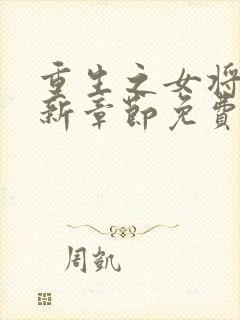 重生之女将
新章節免費
周凱